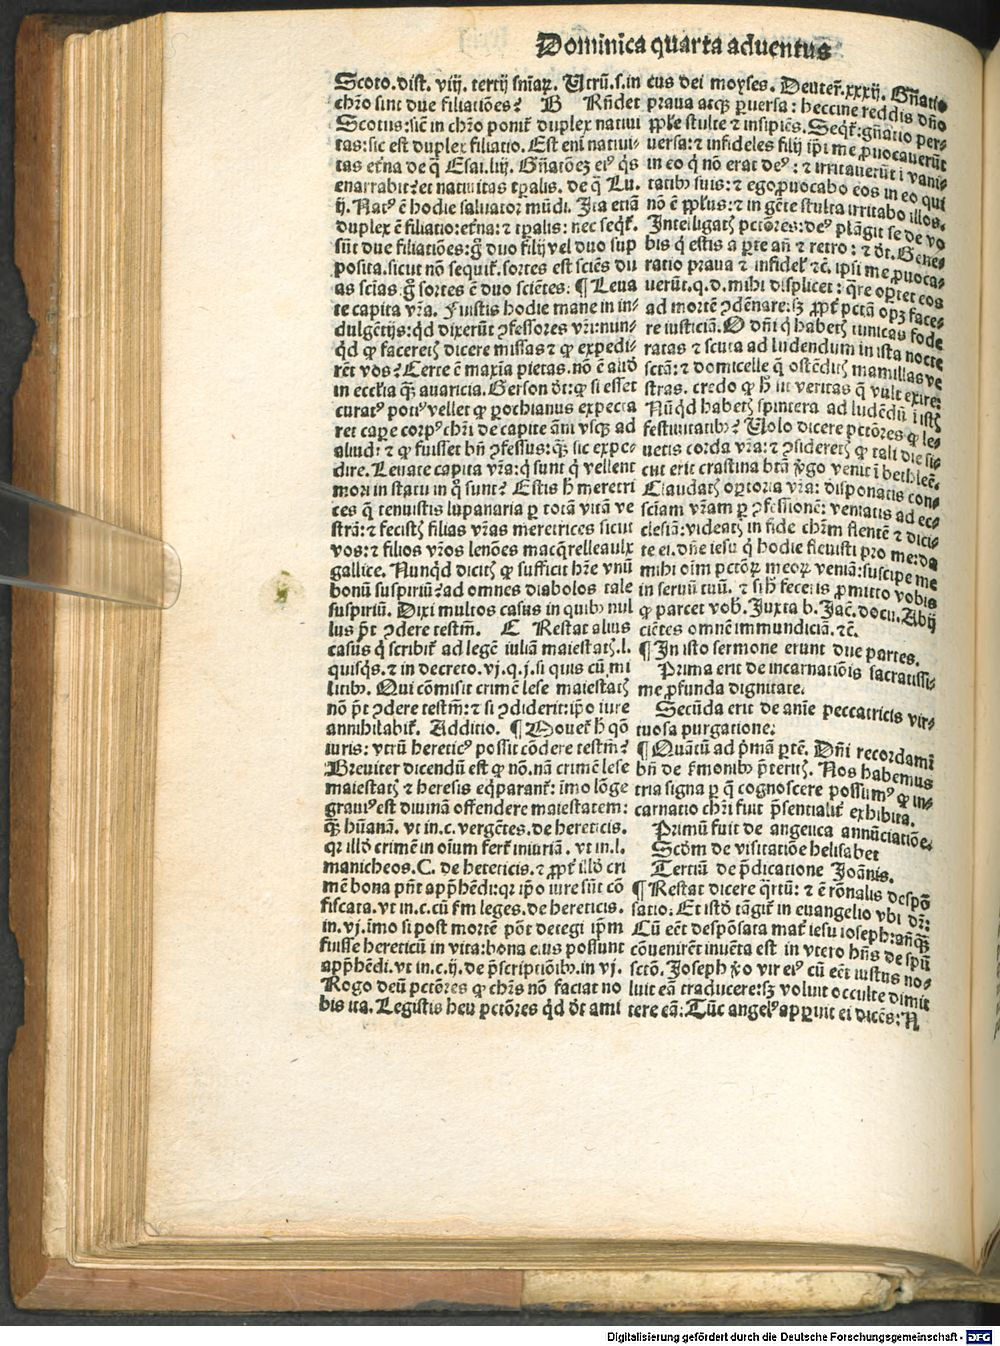 Dominica quarta aduentus
Scoto. dist. viij. tertij sniaꝝ. Utrū. s. in
chr̄o sint due filiatiōes? B Rñdet
Scotus: sic̄ in chr̄o ponit̄ duplex natiui
tas: sic est duplex filiatio. Est enī natiui-
tas et̄na de q̄ Esai. liij. Gñatōeʒ eiꝰ q̄s
enarrabit? et natiuitas tp̄alis. de q̄ Lu.
ij. Natꝰ ē hodie saluator mūdi. Ita etiā
duplex ē filiatio: et̄na: ⁊ tp̄alis: nec seqt̄.
sūt due filiatiōes: g̊ duo filij vel duo sup
posita. sicut nō sequit̄. sortes est sciēs du
as sciās. g̊ sortes ē duo sciētes. ¶ Leua
te capita vr̄a. Fuistis hodie mane in in-
dulgētijs: qd̄ dixerūt ꝯfessores vr̄i: nun-
qd̄ ꝙ faceretꝭ dicere missas ⁊ ꝙ expedi-
rēt vos? Certe ē maxīa pietas. nō ē aliđ
in ecclīa qꝫ auaricia. Gerson đt: ꝙ si esset
curatꝰ potiꝰ vellet ꝙ ꝑochianus expecta
ret cape corpꝰ chr̄i de capite āni vsqꝫ ad
aliud: ⁊ ꝙ fuisset bñ ꝯfessus: qꝫ sic expe-
dire. Leuate capita vr̄a: q̇ sunt q̇ vellent
mori in statu in q̊ sunt? Estis h̄ meretri
ces q̄ tenuistis lupanaria ꝑ totā vitā ve
strā: ⁊ fecistꝭ filias vr̄as meretrices sicut
vos: ⁊ filios vr̄os lenōes macq̄relleaulx
gallice. Nunqd̄ dicitꝭ ꝙ sufficit hr̄e vnū
bonū suspiriū? ad omnes diabolos tale
suspiriū. Dixi multos casus in quibꝫ nul
lus p̄t ꝯdere testm̄. C Restat alius
casus q̇ scribit̄ ad legē iuliā maiestatꝭ. l.
quisq̇s. ⁊ in decreto. vj. q. j. si quis cū mi
litibꝫ. Qui cōmisit crimē lese maiestatꝭ
nō p̄t ꝯdere testm̄: ⁊ si ꝯdiderit: ip̄o iure
annihilabit̄. Additio. ¶ Mouet̄ h̄ qō
iuris: vtrū hereticꝰ possit cōdere testm̄?
Breuiter dicendū est ꝙ nō. nā crimē lese
maiestatꝭ ⁊ heresis eq̇parant̄: imo lōge
grauiꝰ est diuinā offendere maiestatem:
qꝫ hūanā. vt in. c. vergētes. de hereticis.
qr illđ crimē in oium fert̄ iniuriā. vt in. l.
manicheos. C. de hereticis. ⁊ ꝓpt̄ illđ cri
mē bona pn̄t app̄hēdi: qr ip̄o iure sūt cō
fiscata. vt in. c. cū s̄m leges. de hereticis.
in. vj. imo si post mortē pōt detegi ip̄m
fuisse hereticū in vita: bona eius possunt
app̄hēdi. vt in. c. ij. de p̄scriptiōibꝫ. in vj.
Rogo deū pctōres ꝙ chr̄s nō faciat no
bis ita. Legistis heu pctōres qd̄ đt ami
cus dei moyses. Deuter̄. xxxij. Gñatio
praua atqꝫ ꝑuersa: heccine reddis dño
pp̄le stulte ⁊ insipiēs. Seqt̄: gñatio per-
uersa: ⁊ infideles filij ip̄i me ꝓuocauerūt
in eo q̇ nō erat deꝰ: ⁊ irritauerūt ī vani-
tatibꝫ suis: ⁊ ego ꝓuocabo eos in eo qui
nō ē pp̄lus: ⁊ in gēte stulta irritabo illos.
Intelligatꝭ pctōres: deꝰ plāgit se de vo
bis q̇ estis a ꝑte añ ⁊ retro: ⁊ đt. Gene-
ratio praua ⁊ infidel̄ ⁊c̄. ipsi me ꝓuoca-
uerūt. q. d. mihi displicet: qr̄e oꝑtet eos
ad mortē ꝯdēnare: sʒ ꝓpt̄ pctā opʒ face-
re iusticiā. O dñi q̇ habetꝭ tunicas fode
ratas ⁊ scuta ad ludendum in ista nocte
sctā: ⁊ domicelle q̄ ostēditꝭ mamillas ve
stras. credo ꝙ h̄ iii veritas q̄ vult exire:
Nūqd̄ habetꝭ spintera ad ludēdū ī istꝭ
festiuitatibꝫ? Uolo dicere pctōres ꝙ le-
uetis corda vr̄a: ⁊ ꝯsideretꝭ ꝙ tali die si-
cut erit crastina btā v̄go venit ī bethleē.
Claudatꝭ oꝑtoria vr̄a: disponatis con-
sciam vr̄am ꝑ ꝯfessionē: veniatis ad ec-
clesiā: videatꝭ in fide chr̄m flentē ⁊ dici-
te ei. dñe iesu q̇ hodie fleuisti pro me: da
mihi oīm pctōꝝ meoꝝ veniā: suscipe me
in seruū tuū. ⁊ si h̄ feceris ꝓmitto vobis
ꝙ parcet vob̄. Juxta b. Jac̄. docu. Abij
ciētes omnē immundiciā. ⁊c̄.
¶ In isto sermone erunt due partes.
Prima erit de incarnatiōis sacratissi-
me ꝓfunda dignitate.
Secūda erit de anīe peccatricis vir-
tuosa purgatione.
¶ Quātū ad p̄mā ꝑtē. Dñi recordamī
bñ de s̄monibꝫ p̄teritꝭ. Nos habemus
tria signa ꝑ q̄ cognoscere possumꝰ ꝙ in-
carnatio chr̄i fuit p̄sentialit̄ exhibita.
Primū fuit de angelica annūciatiōe.
Scđm de visitatiōe helisabet
Tertiū de p̄dicatione Joānis.
¶ Restat dicere q̄rtū: ⁊ ē rōnalis despō
satio. Et istđ tāgit̄ in euangelio vbi đr̄:
Cū eēt despōsata mat̄ iesu ioseph: añqꝫ
cōuenirēt inuēta est in vtero hñs de spū
sctō. Joseph v̊o vir eiꝰ cū eēt iustus no-
luit eā traducere: sʒ voluit occulte dimit
tere eā. Tūc angelꝰ apꝑuit ei dicēs: N
Digitalisierung gefördert durch die Deutsche Forschungsgemeinschaft - DFG